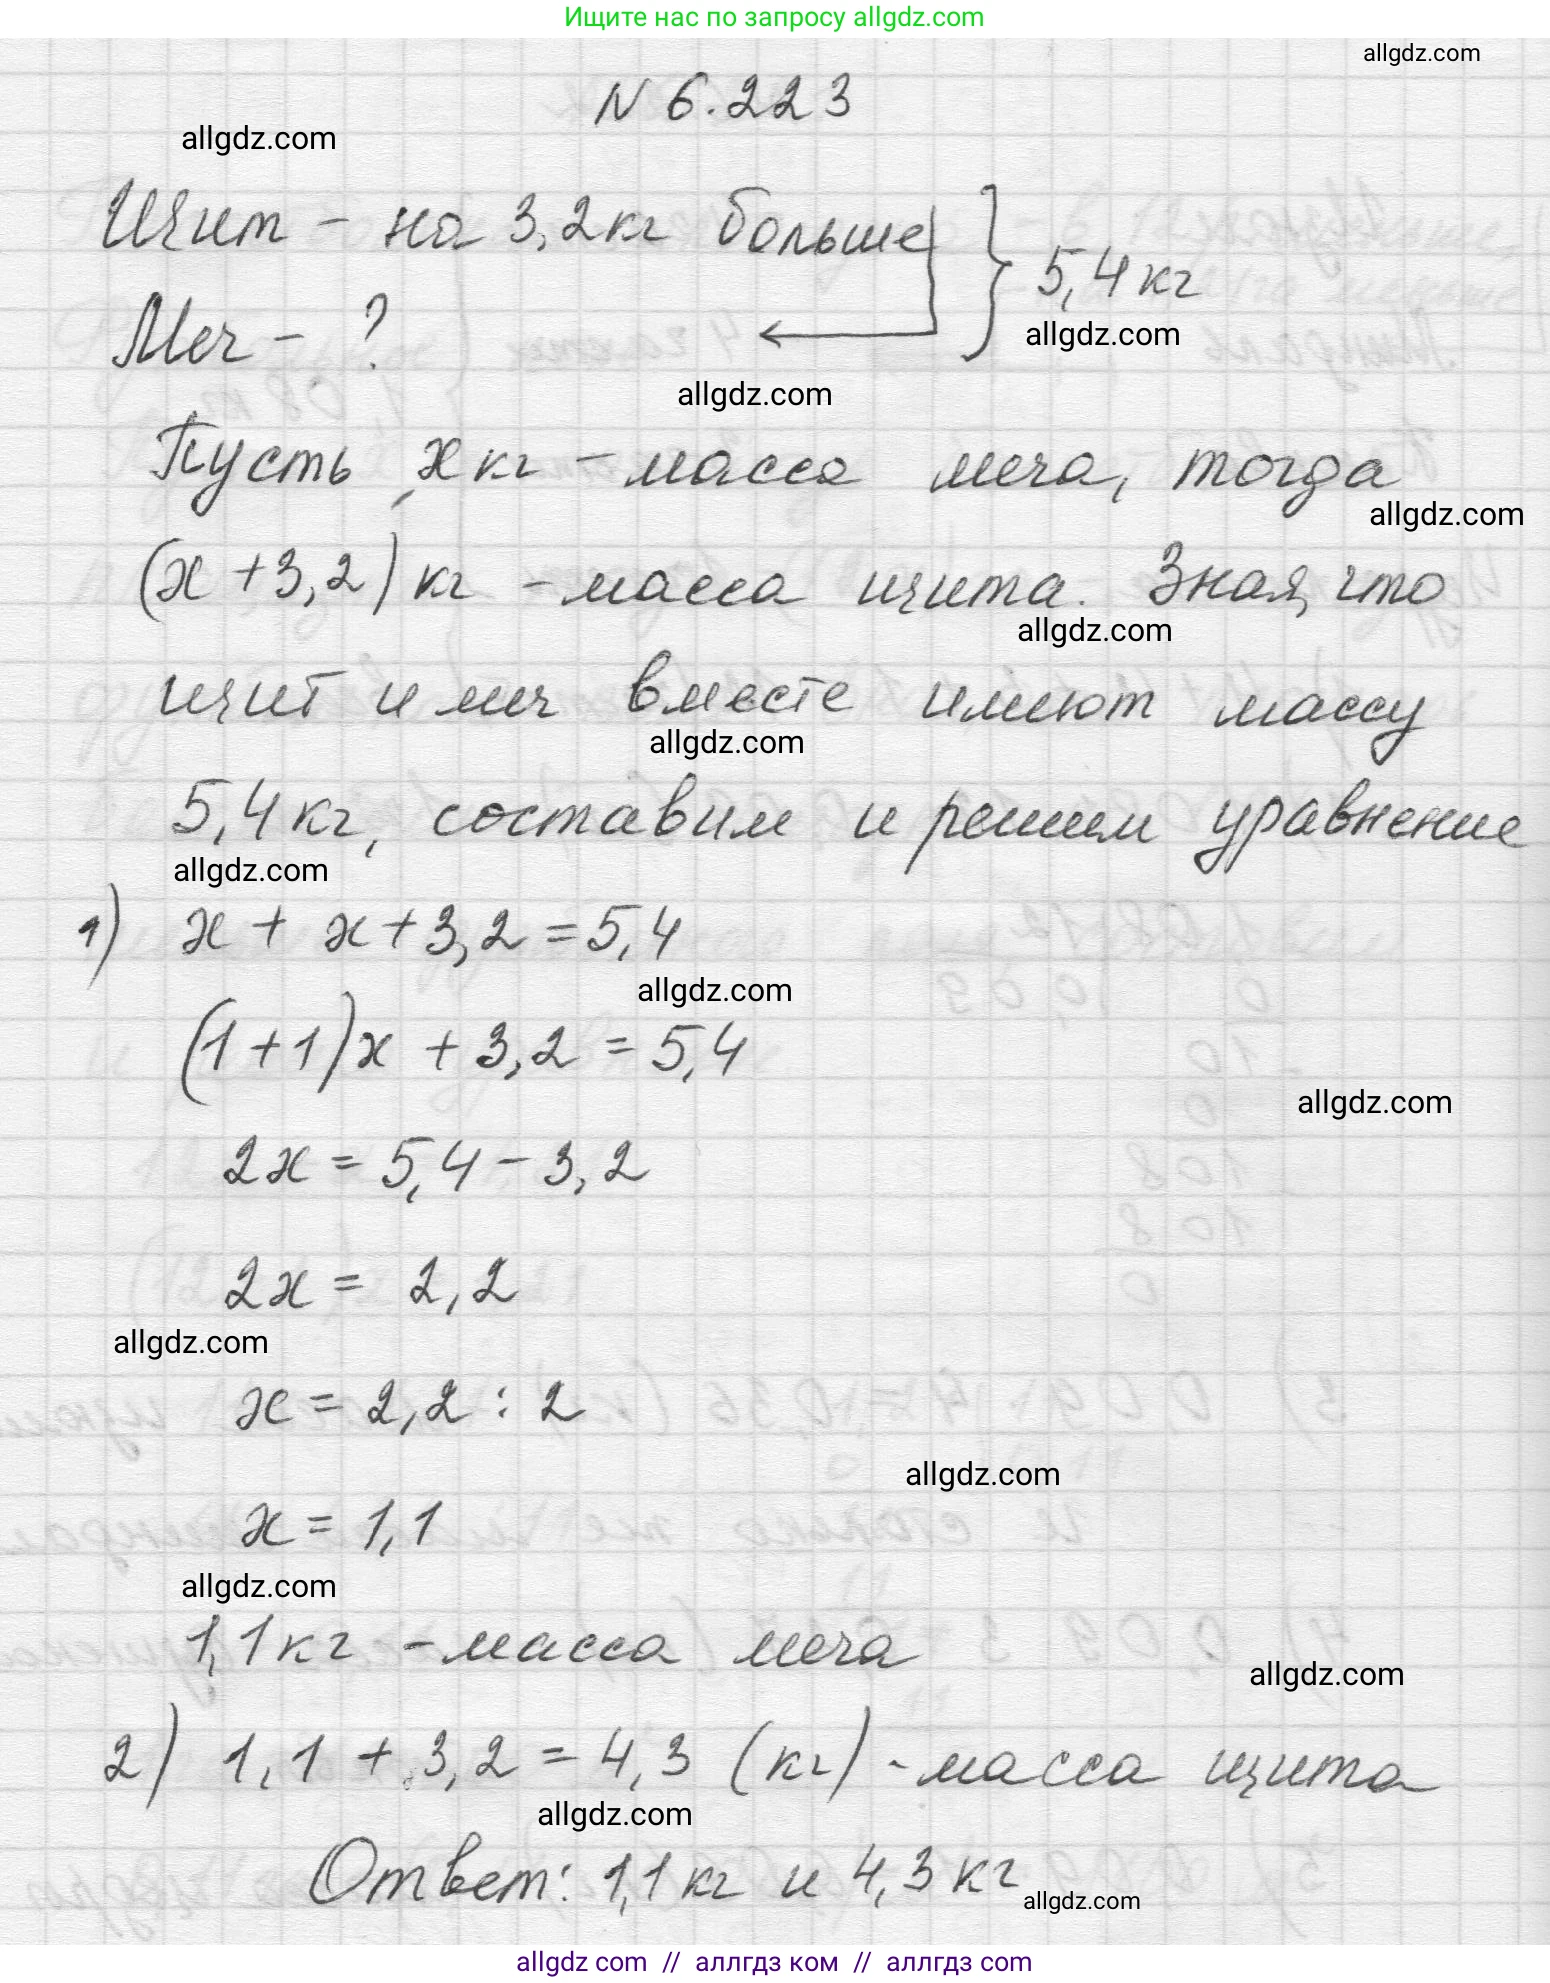 Ищите нас по запросу allgdz.com
allgdz.com
N 6.223
allgdz.com
Щит - на 3,2 кг больше } 5,4 кг
allgdz.com
Меч - ?
allgdz.com
Пусть x кг - масса меча, тогда
allgdz.com
(x + 3,2) кг - масса щита. Зная, что
allgdz.com
щит и меч вместе имеют массу
allgdz.com
5,4 кг, составим и решим уравнение
allgdz.com
1) x + x + 3,2 = 5,4
allgdz.com
(1 + 1)x + 3,2 = 5,4
allgdz.com
2x = 5,4 - 3,2
2x = 2,2
allgdz.com
x = 2,2 : 2
allgdz.com
x = 1,1
allgdz.com
1,1 кг - масса меча
allgdz.com
2) 1,1 + 3,2 = 4,3 (кг) - масса щита
allgdz.com
Ответ: 1,1 кг и 4,3 кг
allgdz.com
allgdz com // аллгдз ком // аллгдз com